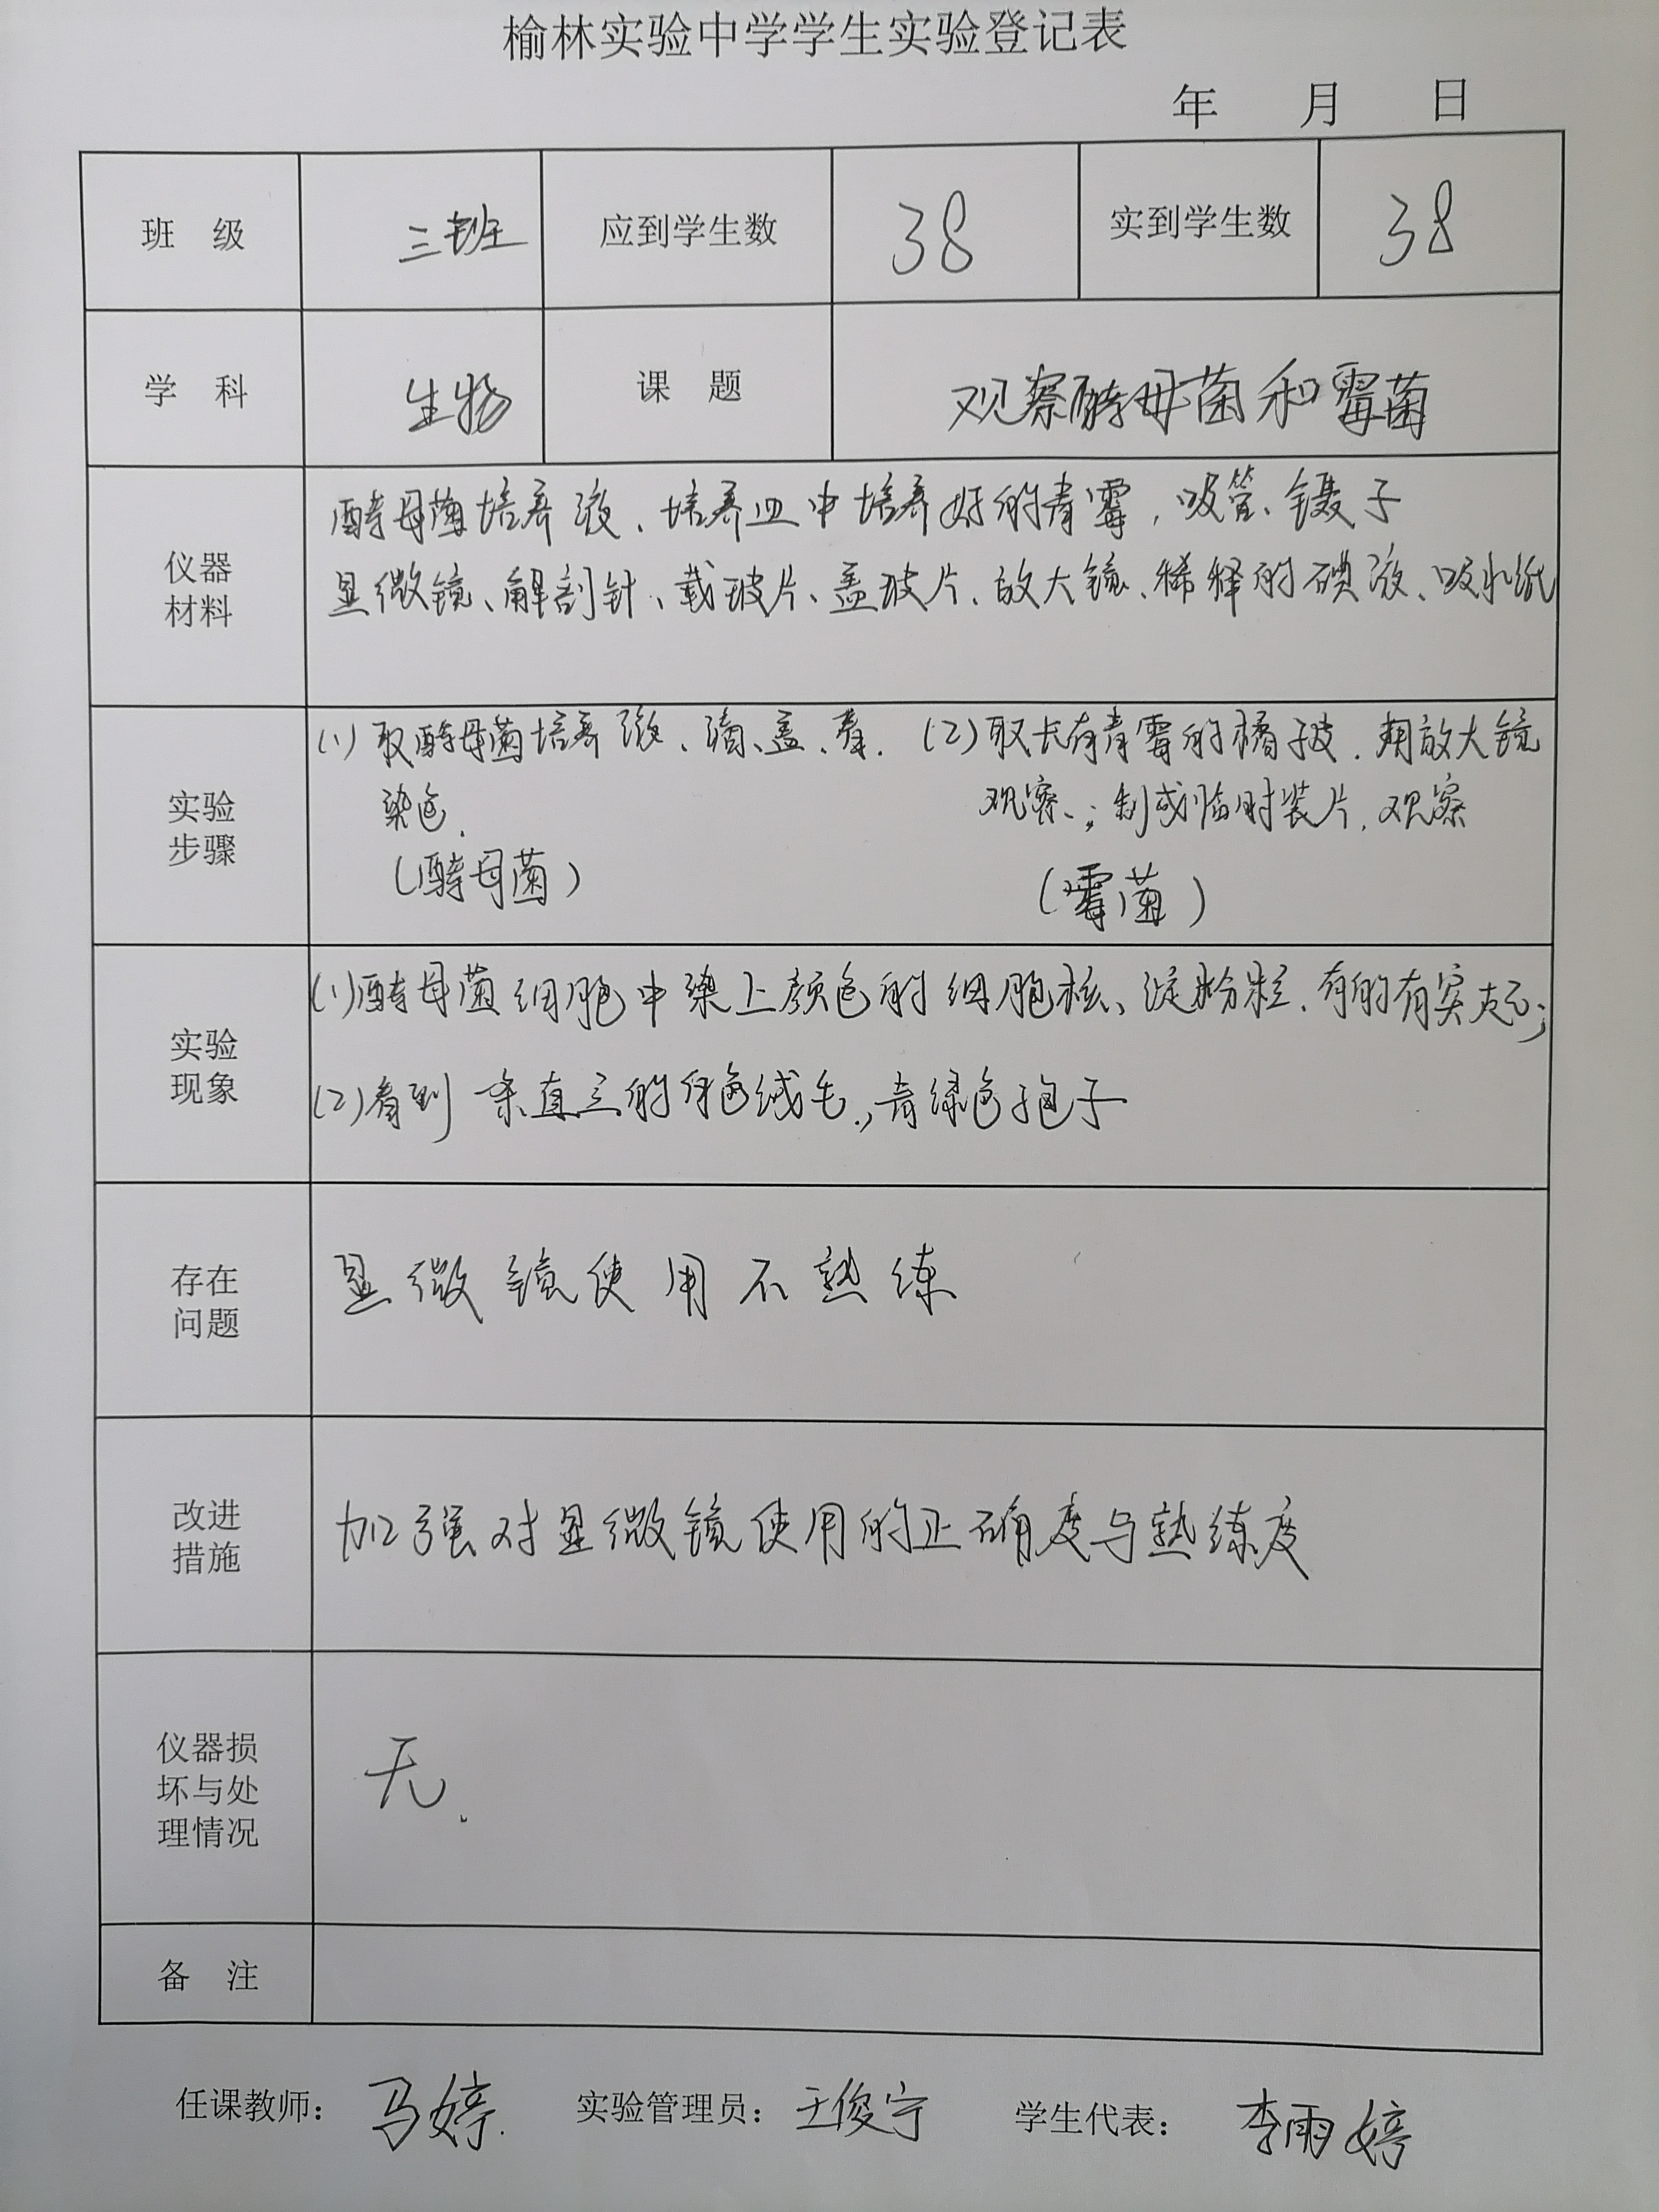 榆林实验中学学生实验登记表
年 月 日
班 级 三班 应到学生数 38 实到学生数 38
学 科 生物 课 题 观察酵母菌和霉菌
仪器材料
酵母菌培养液、培养皿中培养好的青霉，吸管、镊子
显微镜、解剖针、载玻片、盖玻片、放大镜、稀释的碘液、吸水纸
实验步骤
(1) 取酵母菌培养液、滴、盖、
染色.
(酵母菌)
(2) 取长有青霉的橘子皮，用放大镜
观察、；制成临时装片，观察
(霉菌)
实验现象
(1) 酵母菌细胞中染上颜色的细胞核、淀粉粒、有的有突起；
(2) 看到一条直立的白色绒毛.，青绿色孢子
存在问题
显微镜使用不熟练
改进措施
加强对显微镜使用的正确度与熟练度
仪器损坏与处理情况
无.
备 注
任课教师：马婷. 实验管理员：王俊宁 学生代表：李雨婷